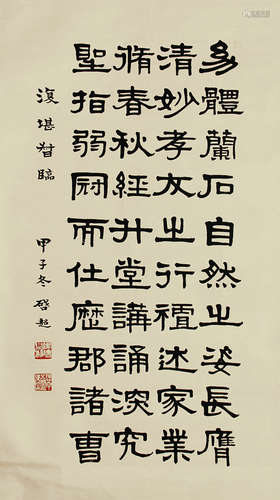 幼體蘭石自然之姿長膺
清妙孝友之行述家業
脩春秋經升堂講誦深究
聖指弱冠而仕歷郡諸曹
復堪督臨
甲子冬啓超